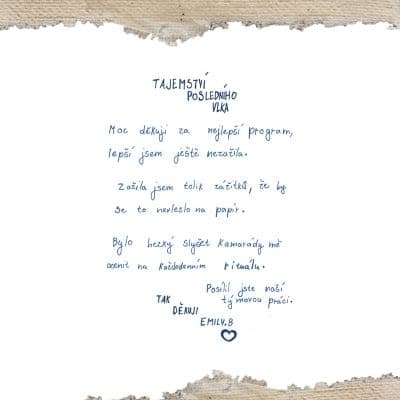 TAJEMSTVÍ
POSLEDNÍHO
VLKA
Moc děkuji za nejlepší program,
lepší jsem ještě nezažila.
Zažila jsem tolik zážitků, že by
se to nevlezlo na papír.
Bylo hezký slyšet kamarády mě
ocenit na každodenním rituálu.
Posílil jste naší
týmovou práci.
TAK
DĚKUJI
EMILY.B